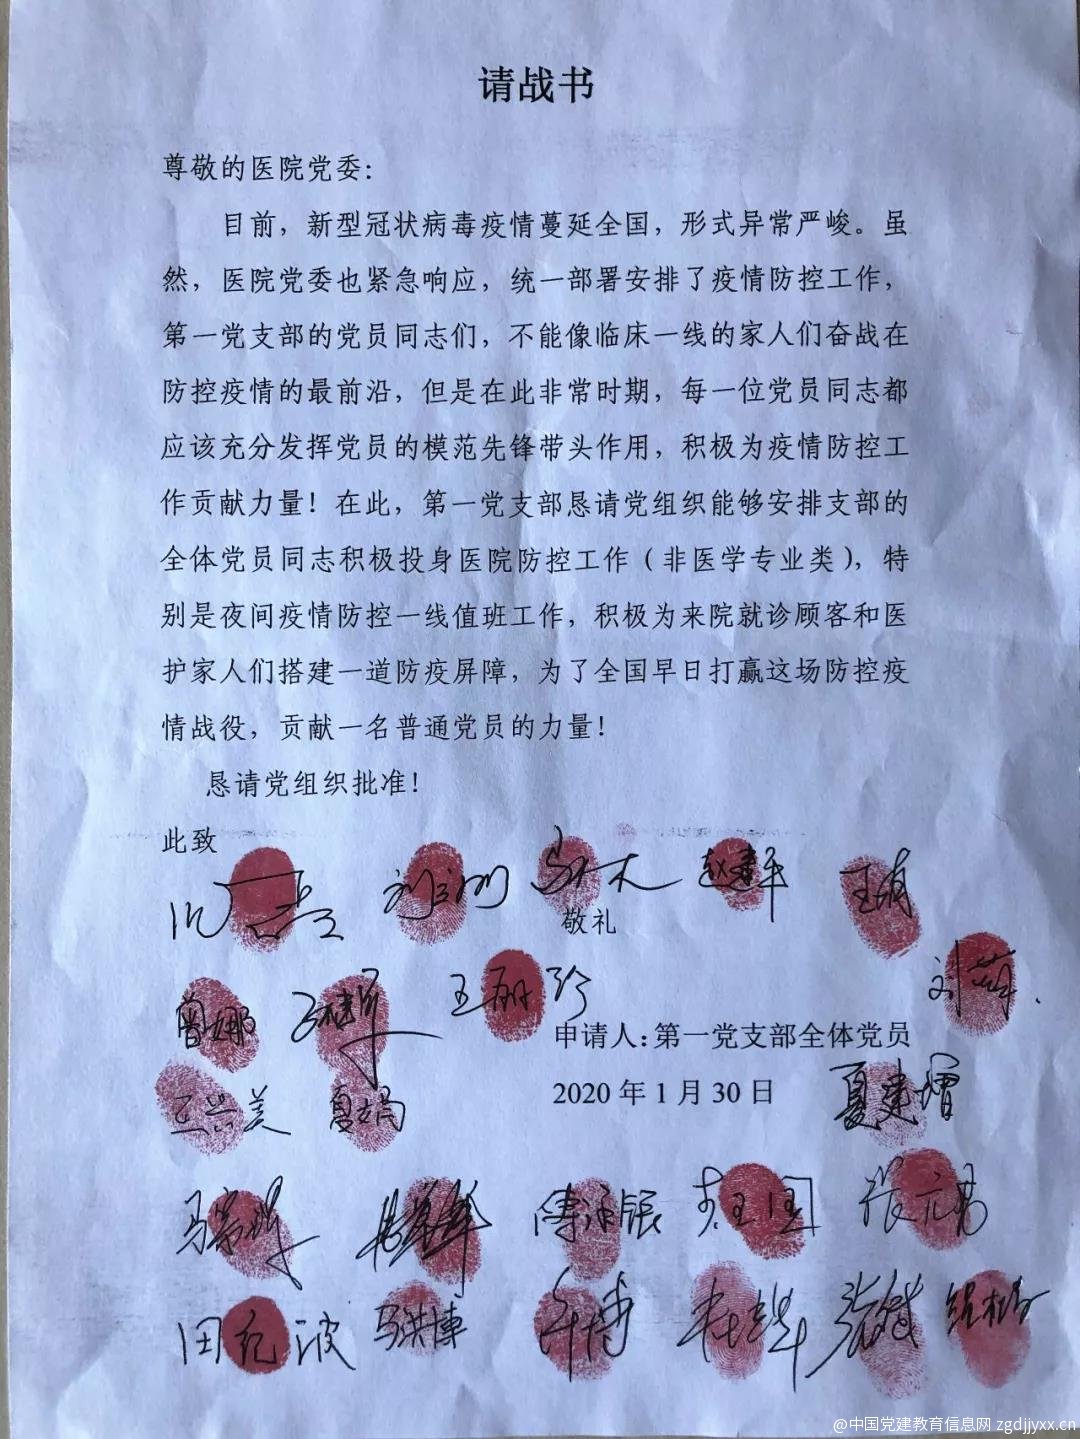 请战书
尊敬的医院党委：
目前，新型冠状病毒疫情蔓延全国，形式异常严峻。虽
然，医院党委也紧急响应，统一部署安排了疫情防控工作，
第一党支部的党员同志们，不能像临床一线的家人们奋战在
防控疫情的最前沿，但是在此非常时期，每一位党员同志都
应该充分发挥党员的模范先锋带头作用，积极为疫情防控工
作贡献力量！在此，第一党支部恳请党组织能够安排支部的
全体党员同志积极投身医院防控工作（非医学专业类），特
别是夜间疫情防控一线值班工作，积极为来院就诊顾客和医
护家人们搭建一道防疫屏障，为了全国早日打赢这场防控疫
情战役，贡献一名普通党员的力量！
恳请党组织批准！
此致
赵春平
敬礼
曾娜
王丽珍
刘萍
申请人：第一党支部全体党员
2020 年 1 月 30 日
夏娟
夏建增
田纪波
马洪博
@中国党建教育信息网 zgdjjyxx.cn